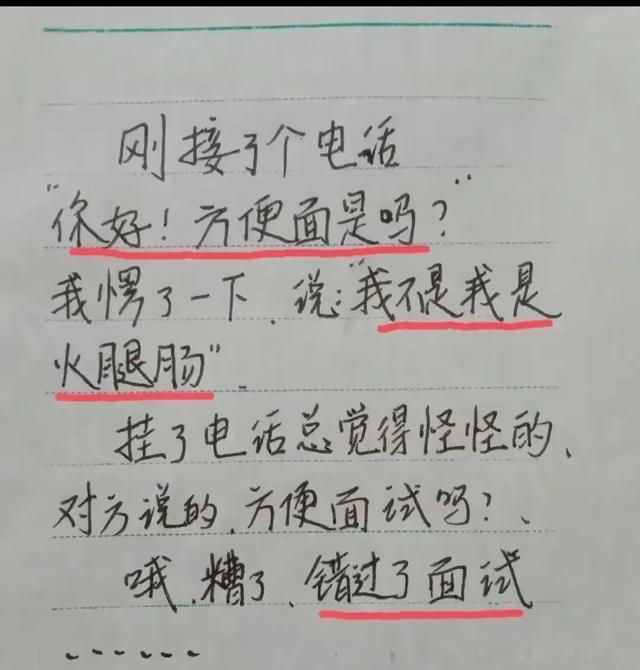 刚接了个电话
"你好！方便面是吗？"
我愣了一下、说："我不是我是
火腿肠"．
挂了电话总觉得怪怪的、
对方说的、方便面试吗？、
哦、糟了、错过了面试
······